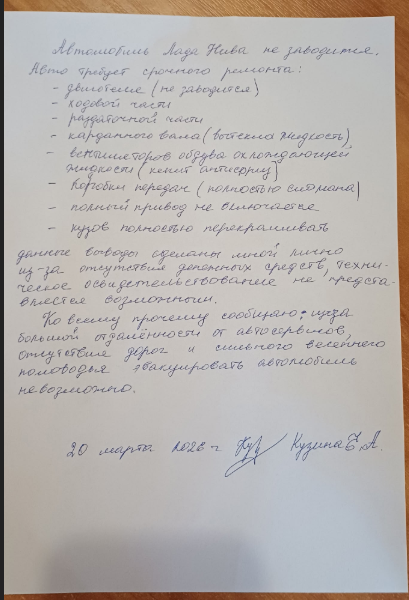 Автомобиль Лада Нива не заводится.
Авто требует срочного ремонта:
- двигателя (не заводится)
- ходовой части
- раздаточной части
- карданного вала (вытекла жидкость)
- вентиляторов обдува охлождающей
жидкости (кипит антифриз)
- коробки передач (полностью сломана)
- полный привод не включается
- кузов полностью перекрашивать
данные выводы сделаны мной лично
из-за отсутствия денежных средств, техни-
ческое освидетельствование не предста-
вляется возможным.
Ко всему прочему сообщаю: из-за
большой отдалённости от автосервисов,
отсутствие дорог и сильного весеннего
половодья эвакуировать автомобиль
невозможно.
20 марта 2026 г Кузина Е.А.